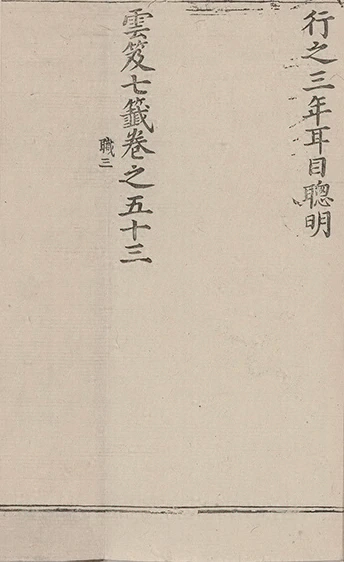 行之三年耳目聰明
雲笈七籤卷之五十三
職三